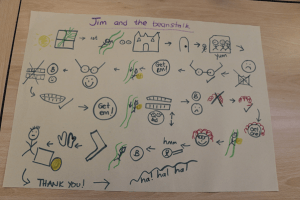 Jim and the beanstalk
Yum
Get em!
B
B
Get em!
B
hmm
B
THANK YOU!
ha! ha! ha!